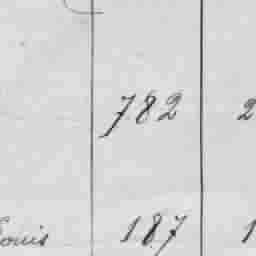 782 2
Louis 187 1